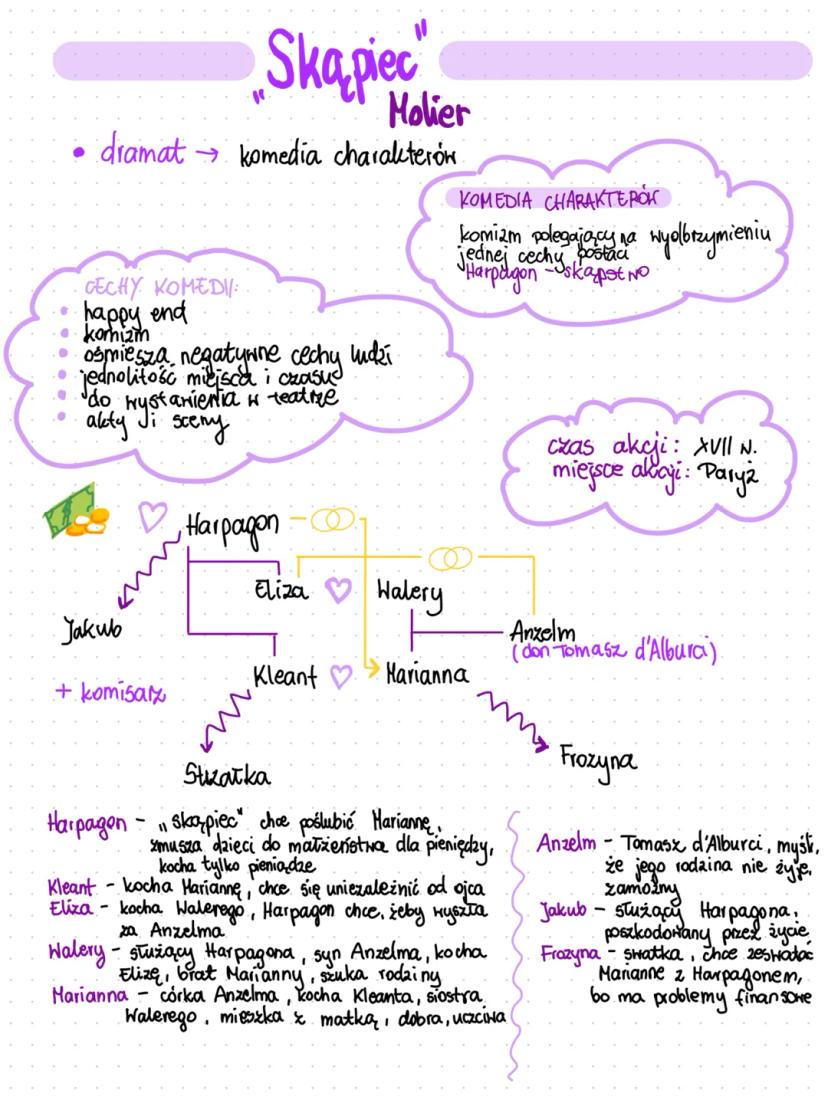 „Skąpiec"
Molier
• dramat → komedia charakterów
KOMEDIA CHARAKTERÓW
komizm polegający na wyolbrzymieniu
jednej cechy postaci
Harpagon - skąpstwo
CECHY KOMEDII:
• happy end
• komizm
• ośmiesza negatywne cechy ludzi
• jednolitość miejsca i czasu
• do wystawienia w teatrze
• akty i sceny
czas akcji: XVII w.
miejsce akcji: Paryż
Harpagon
Eliza Walery
Jakub
Anzelm
(don Tomasz d'Alburci)
Kleant Marianna
+ komisarz
Strzałka
Frozyna
Harpagon - „skąpiec" chce poślubić Mariannę,
zmusza dzieci do małżeństwa dla pieniędzy,
kocha tylko pieniądze
Kleant - kocha Mariannę, chce się uniezależnić od ojca
Eliza - kocha Walerego, Harpagon chce, żeby wyszła
za Anzelma
Walery - służący Harpagona, syn Anzelma, kocha
Elizę, brat Marianny, szuka rodziny
Marianna - córka Anzelma, kocha Kleanta, siostra
Walerego, mieszka z matką, dobra, uczciwa
Anzelm - Tomasz d'Alburci, myśli,
że jego rodzina nie żyje,
zamożny
Jakub - służący Harpagona,
poszkodowany przez życie
Frozyna - swatka, chce zeswatać
Marianne z Harpagonem,
bo ma problemy finansowe